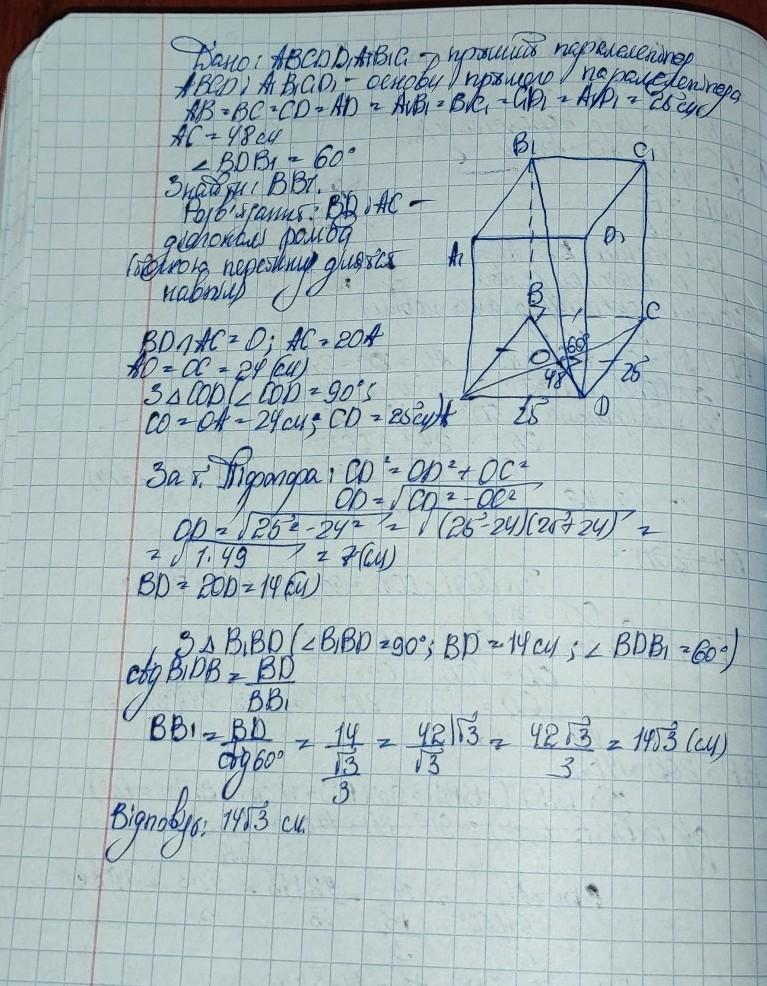 Дано: ABCDD₁A₁B₁C₁ – прямий паралелепіпед
ABCD і A₁B₁C₁D₁ – основи прямого паралелепіпеда
AB = BC = CD = AD = A₁B₁ = B₁C₁ = C₁D₁ = A₁D₁ = 25 см
AC = 48 см
∠ BDB₁ = 60°
Знайти: BB₁.
Розв'язання: BD і AC –
діагоналі ромба
(точкою перетину діляться
навпіл)
B₁
C₁
A₁
D₁
B
C
O
60°
48
25
A
25
D
BD ∩ AC = O; AC = 2OA
AO = OC = 24 (см)
З Δ COD (∠ COD = 90°;
CO = OA = 24 см; CD = 25 см)
За т. Піфагора: CD² = OD² + OC²
OD = √(CD² – OC²)
OD = √(25² – 24²) = √((25 – 24)(25 + 24)) =
= √(1·49) = 7 (см)
BD = 2OD = 14 (см)
З Δ B₁BD (∠ B₁BD = 90°; BD = 14 см; ∠ BDB₁ = 60°)
ctg B₁DB = BD/BB₁
BB₁ = BD/ctg 60° = 14/(√3/3) = 42/√3 |√3 = 42√3/3 = 14√3 (см)
Відповідь: 14√3 см.